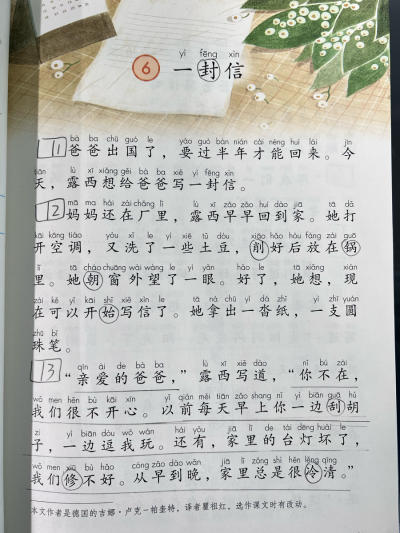 yì fēng xìn
6 一封信
bà ba chū guó le yào guò bàn nián cái néng huí lái jīn
1 爸爸出国了，要过半年才能回来。今
tiān lù xī xiǎng gěi bà ba xiě yì fēng xìn
天，露西想给爸爸写一封信。
mā ma hái zài chǎng lǐ lù xī zǎo zǎo huí dào jiā tā dǎ
2 妈妈还在厂里，露西早早回到家。她打
kāi kōng tiáo yòu xǐ le yì xiē tǔ dòu xiāo hǎo hòu fàng zài guō
开空调，又洗了一些土豆，削好后放在锅
lǐ tā cháo chuāng wài wàng le yì yǎn hǎo le tā xiǎng xiàn
里。她朝窗外望了一眼。好了，她想，现
zài kě yǐ kāi shǐ xiě xìn le tā ná chū yì dá zhǐ yì zhī yuán
在可以开始写信了。她拿出一沓纸，一支圆
zhū bǐ
珠笔。
qīn ài de bà ba lù xī xiě dào nǐ bú zài
3 “亲爱的爸爸，”露西写道，“你不在，
wǒ men hěn bù kāi xīn yǐ qián měi tiān zǎo shang nǐ yì biān guā hú
我们很不开心。以前每天早上你一边刮胡
zi yì biān dòu wǒ wán hái yǒu jiā lǐ de tái dēng huài le
子，一边逗我玩。还有，家里的台灯坏了，
wǒ men xiū bù hǎo cóng zǎo dào wǎn jiā lǐ zǒng shì hěn lěng qīng
我们修不好。从早到晚，家里总是很冷清。”
本文作者是德国的吉娜·卢克-帕奎特，译者瞿祖红。选作课文时有改动。